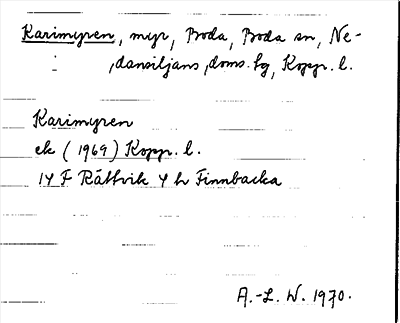 Karimyren, myr, Boda, Boda sn, Ne-
dansiljans doms. hg, Kopp. l.
Karimyren
ek (1969) Kopp. l.
14 F Rättvik 4 h Finnbacka
A.-L. W. 1970.